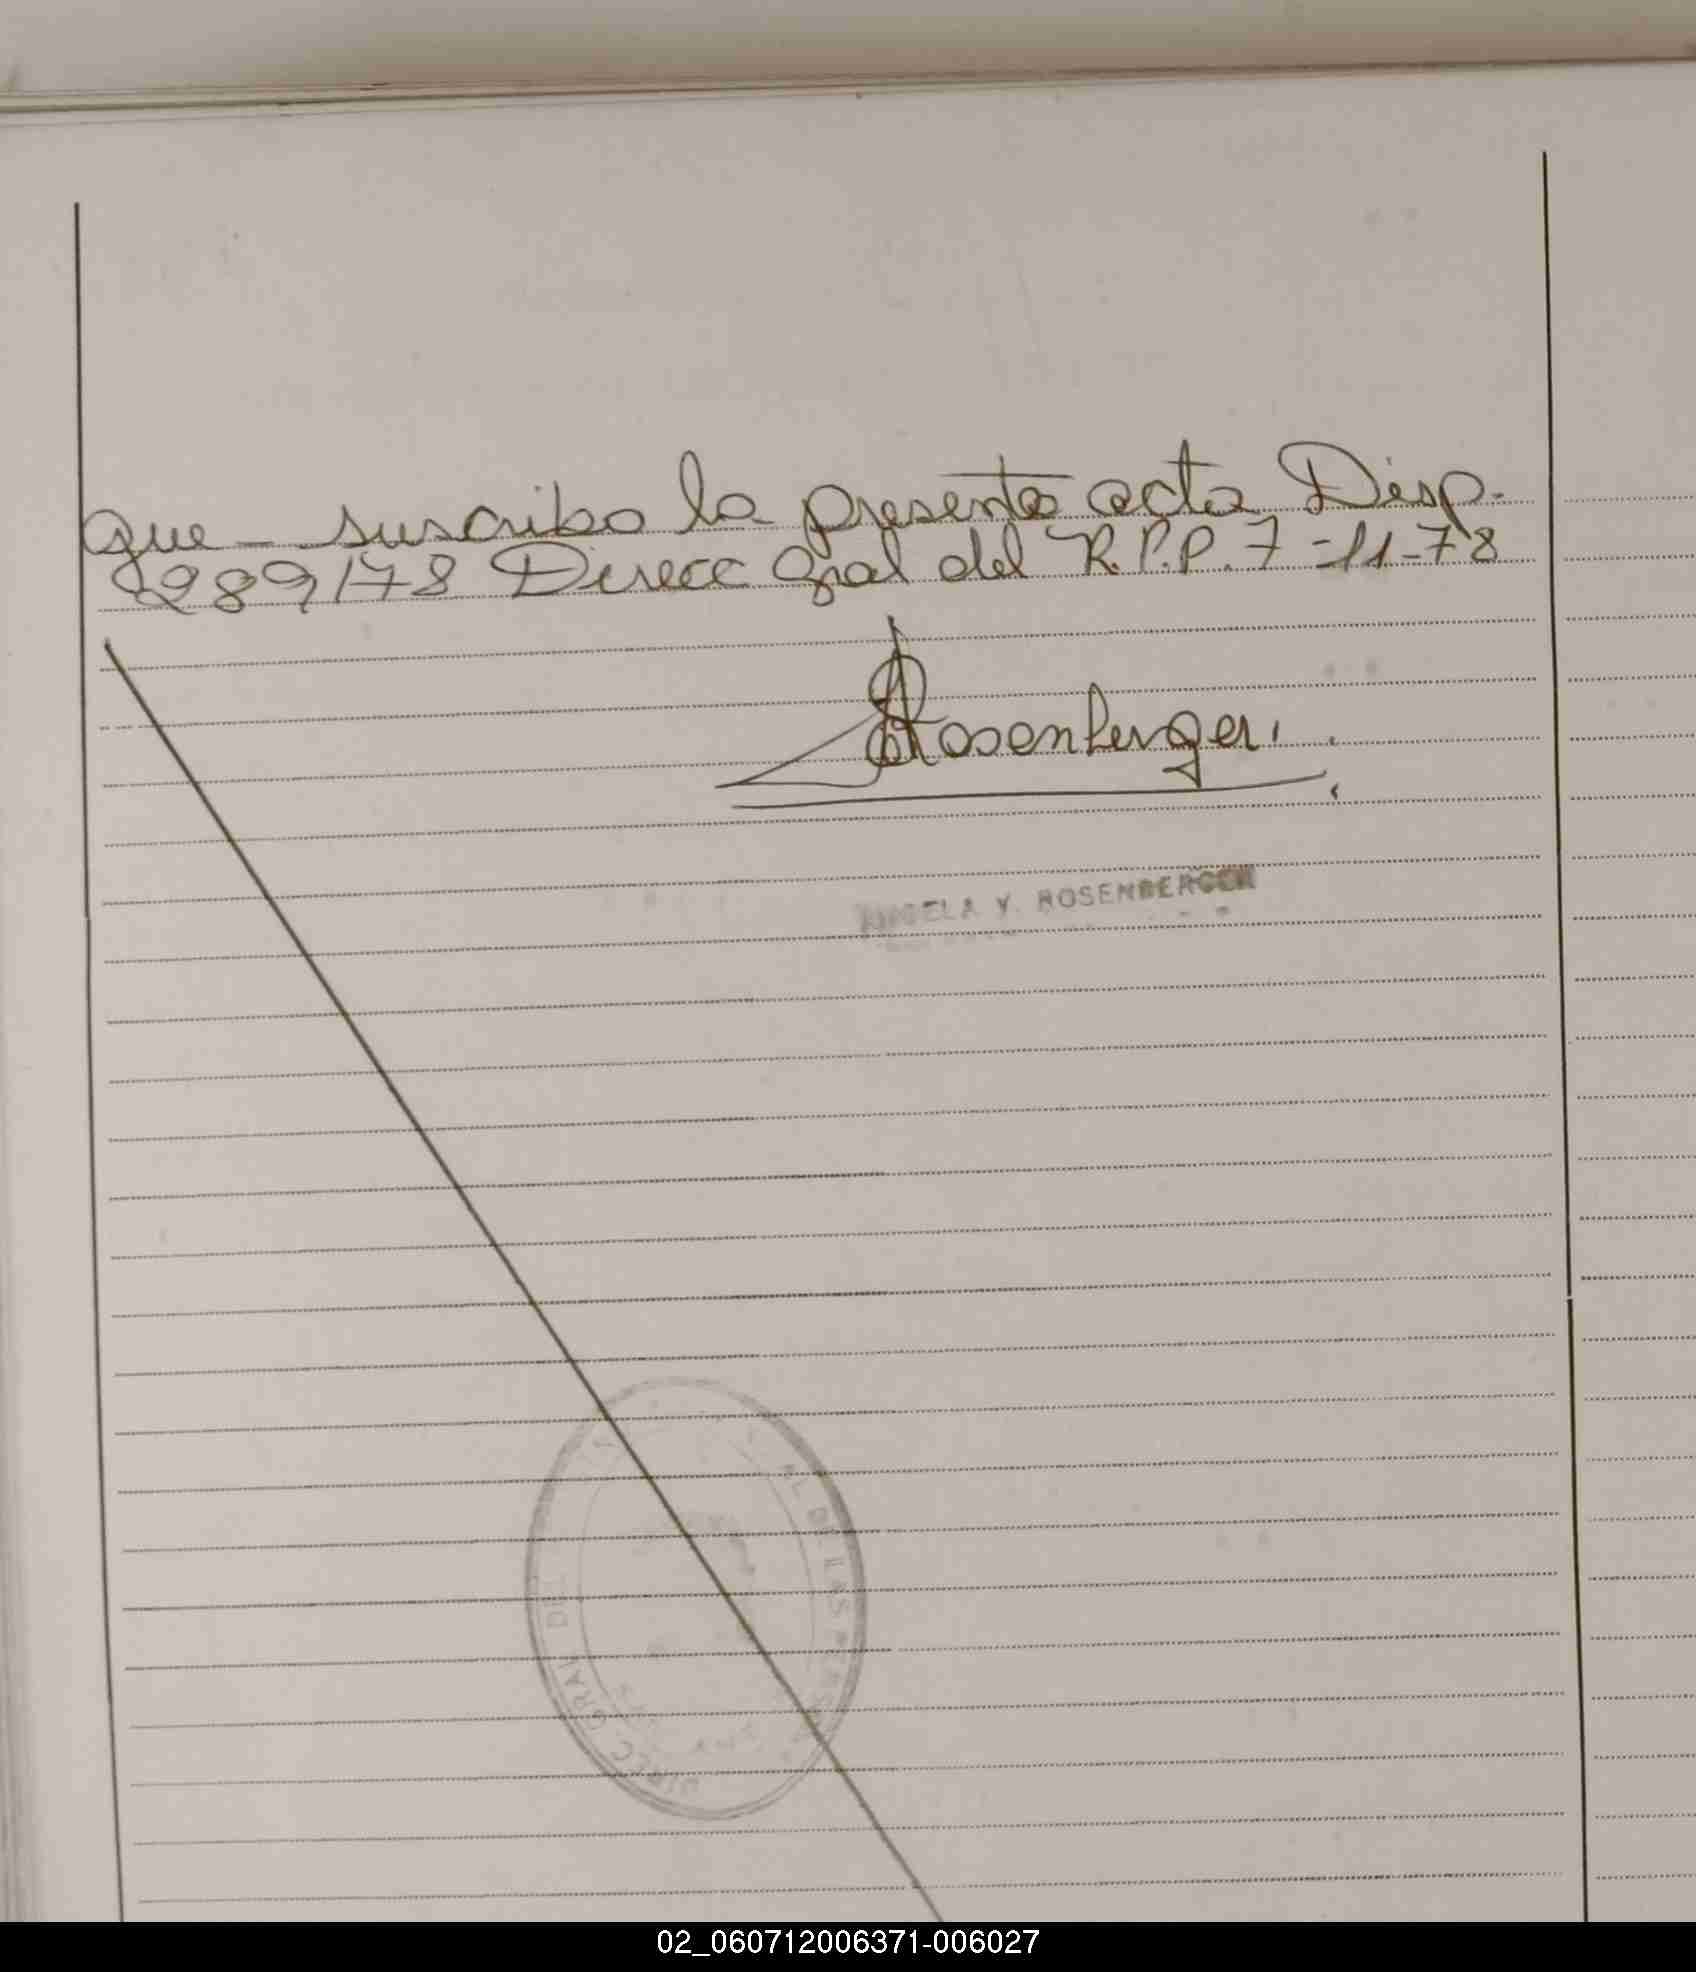 que - suscribo la presente acta Disp.
289/78 Direcc Gral del R.P.P. 7-11-78
Rosenberger.
ANGELA V. ROSENBERGER
DIREC GRAL DEL
AL DE LAS PER
02_060712006371-006027